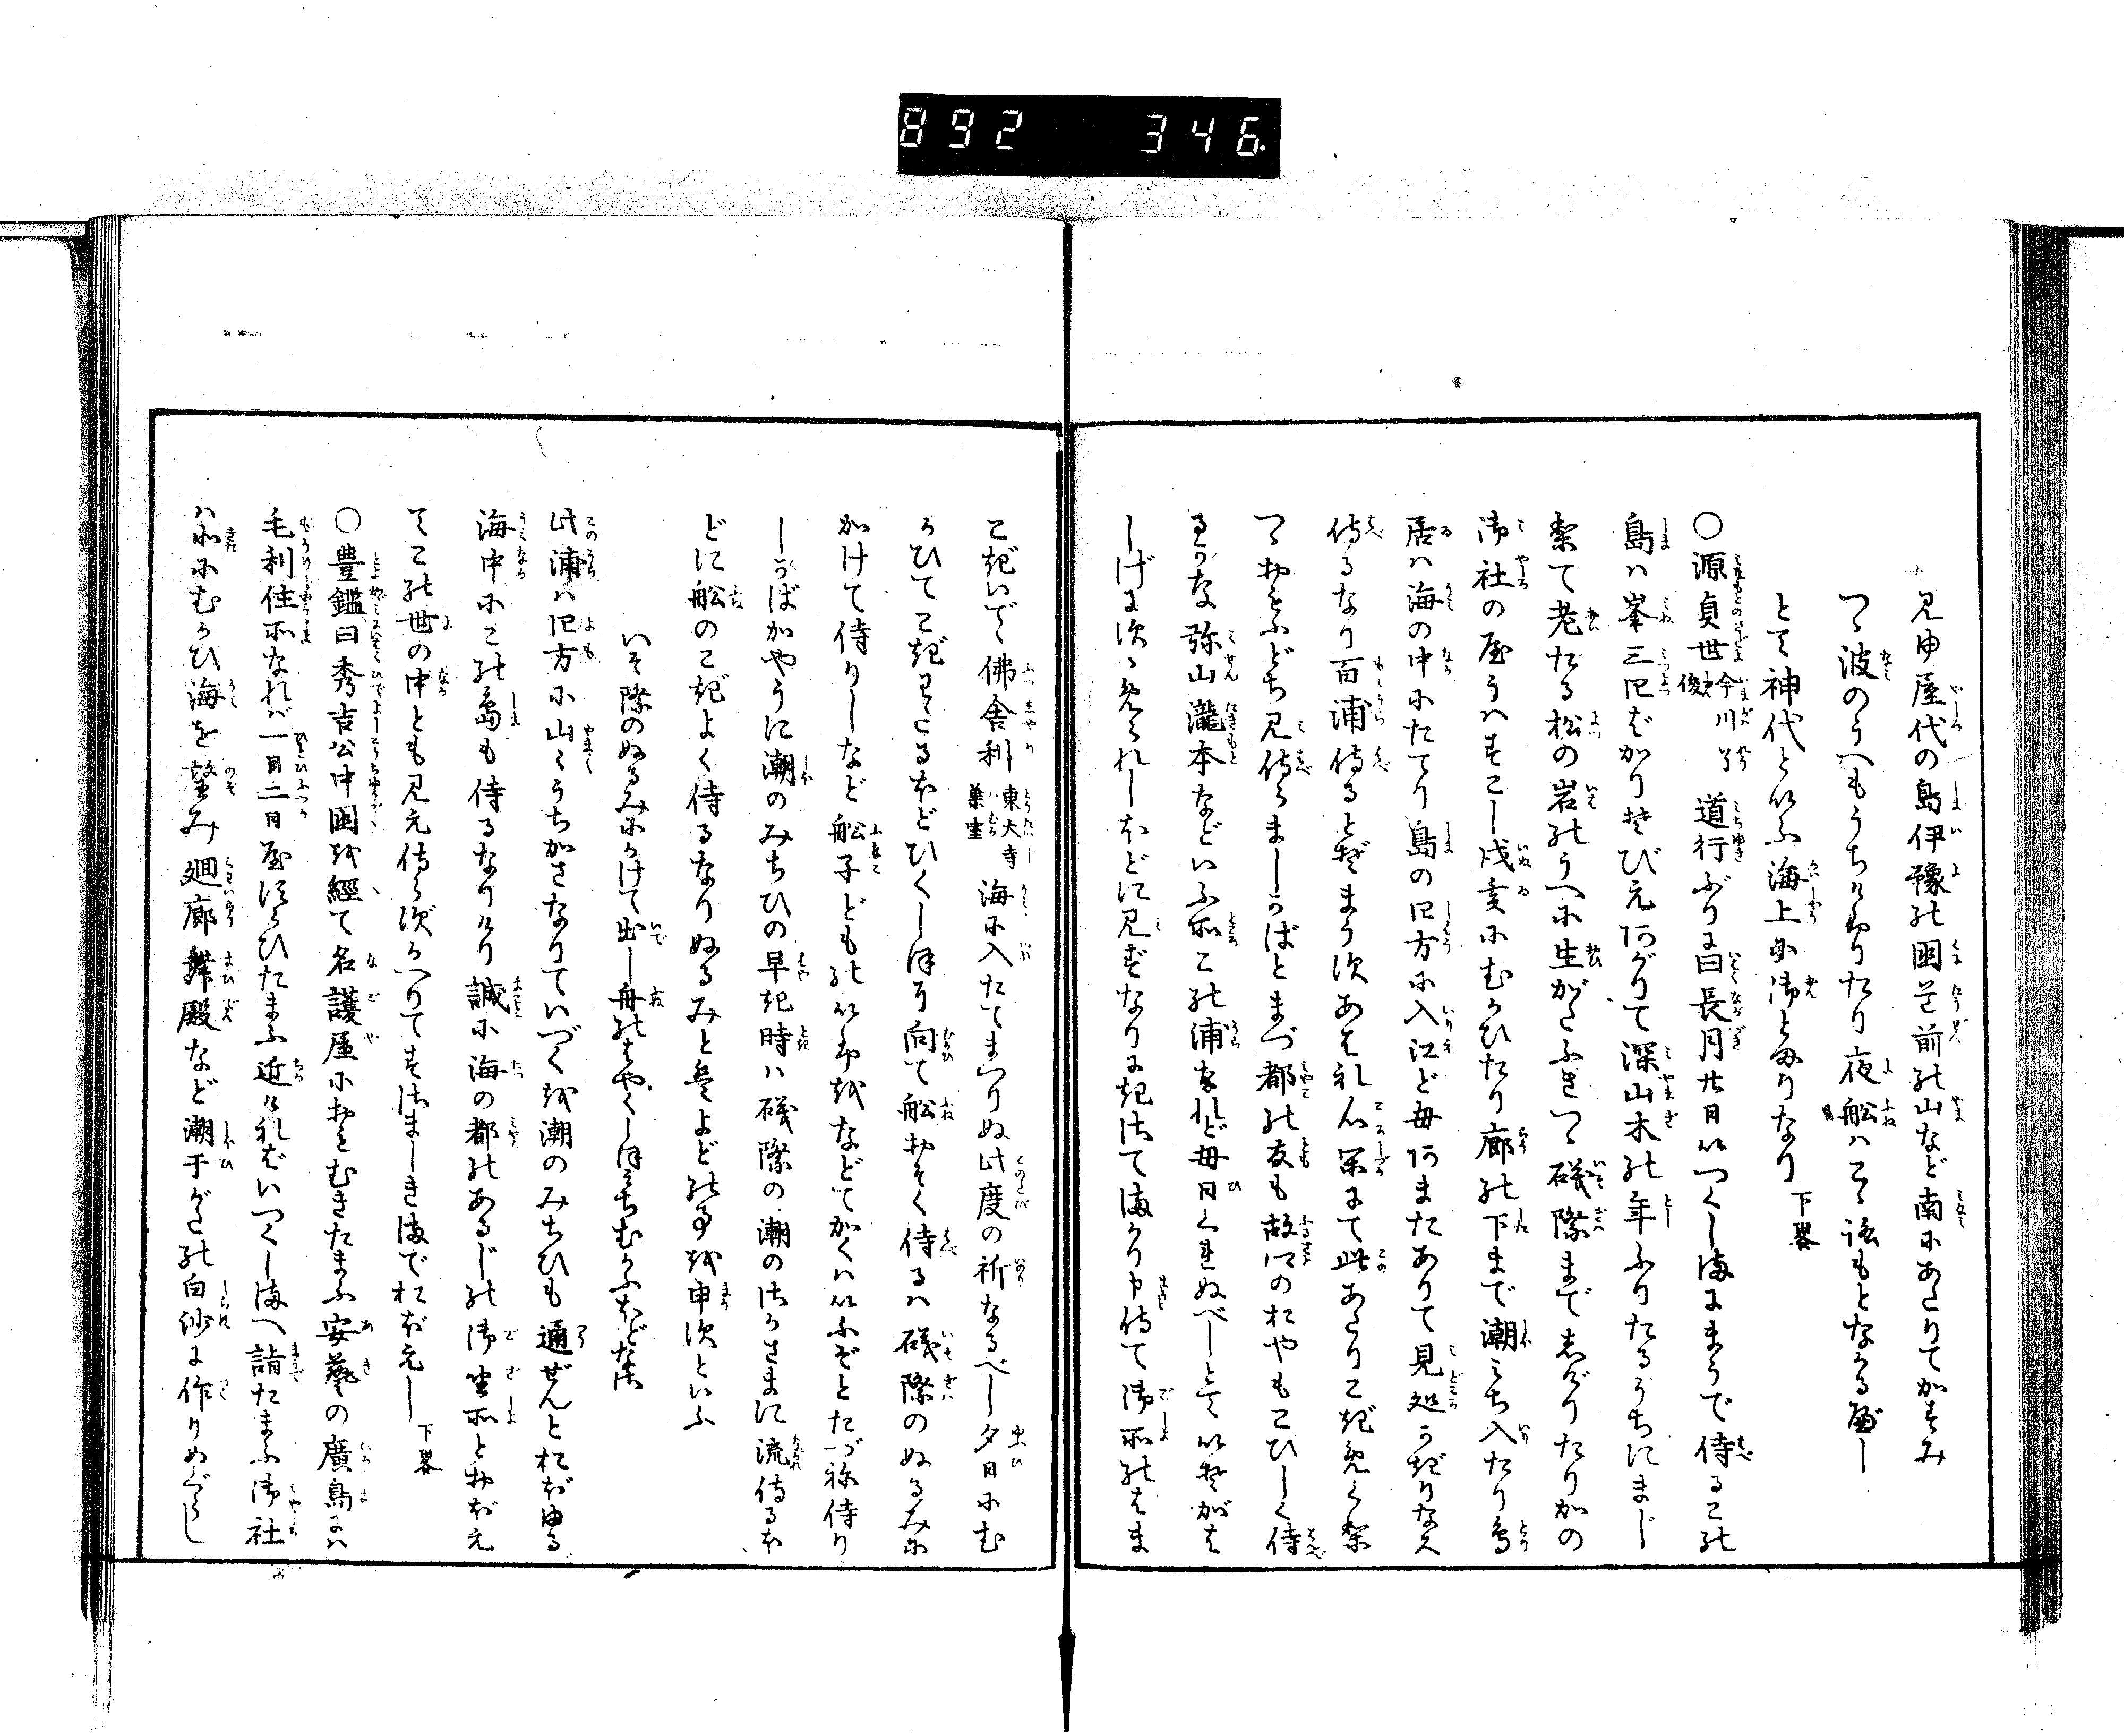 892 346.
見ゆ屋代の島伊豫の国豊前の山など南にあたりてかすみ
つゝ波のうへもうちけぶりたり夜船はこゝ誰もとなかるべし
とて神代といふ海上に御とまりなり 下畧
○源貞世今川了俊道行ぶりに曰長月廿日いつくしまにまうで侍るこの
島は峯三四ばかりそびえあがりて深山木の年ふりたるうちにまじ
梨て老たる松の岩のうへに生かたふきつゝ磯際までしだりたりかの
御社の屋うはすこし戌亥にむかひたり廊の下まで潮みち入たり鳥
居は海の中にたてり島の四方に入江ども あまたありて見処かぎりなく
侍るなり百浦侍るとぞまうすあそれ心栄にて此あたりこぎめぐ梨
つゝおもふどち見侍らましかばとまづ都の友も故郷のおやもこひしく侍
るかな弥山瀧本などいふ所この浦なれども日くれぬべしとていそがは
しげにすゝめられしほどに見ずなりにきさてまかり申侍て御所のはま
こぎいで佛舎利東大寺菓塗海に入たてまつりぬ此度の祈なるべし夕日にむ
かひてこぎわたるほどひくしほに向て船おそく侍るは磯際のぬるみに
かけて侍りしなど船子どものいふをなどてかくはいふぞとたづね侍り
しかばかやうに潮のみちひの早き時は磯際の潮のさかさまに流侍るほ
どに船のこぎよく侍るなりぬるみと登よどのかを申すといふ
いそ際のぬるみにかけて出し舟のはやくしほさちむかふほどなさ
此浦は四方に山々うちかさなりていづくを潮のみちひも通ぜんとおぼゆる
海中にこの島も侍るなりけり誠に海の都のあるじの御坐所とおぼえ
てこの世の中とも見え侍らずかへりてすさましきまでおぼえし 下畧
○豊鑑曰秀吉公中国を經て名護屋におもむきたまふ安藝の廣島には
毛利住所なれば一日二日屋すらひたまふ近ければいつくしまへ詣たまふ御社
は北にむかひ海を望み廻廊舞殿など潮干がたの白紗に作りめぐらし